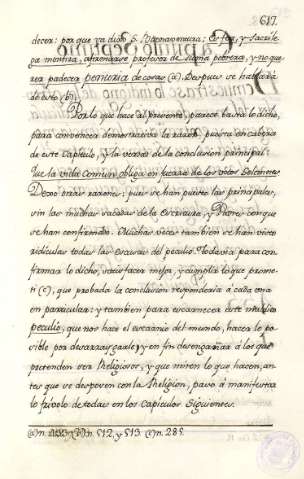 617.
decera: por que ya dixo S. Buenaventura: Es fea, y sacrilega mentira, afirmarse profesor de suma pobreza, y no querer padecer penuria de cosas (a). Despues se hablará de esto (b).
Por lo que hace al presente, parece basta lo dicho, para convencer demostrativa la razon puesta en cabeza de este Capitulo, y la verdad de la conclusion principal: Que la vida comun obliga en fuerza de los votos Solemnes.
Dexo otras razones; pues se han puesto las principales, sin las muchas sacadas de la Escritura, y Padres, con que se han confirmado. Muchas veces tambien se han visto ridiculas todas las escusas del peculio. Todavia para confirmar lo dicho, satisfacer mejor, y cumplir lo que prometi (c), que probada la conclusion responderia á cada una en particular: y tambien para escarnecer este
peculio, que nos hace el escarnio del mundo, hacer lo posible por desarraygarle; y en fin desengañar á los que pretenden ser Religiosos, y que miren lo que hacen, antes que se desposen con la Religion, paso á manifestar lo frivolo de todas en los Capitulos Siguientes.
(b) n. 512, y 513. (c) n. 285.